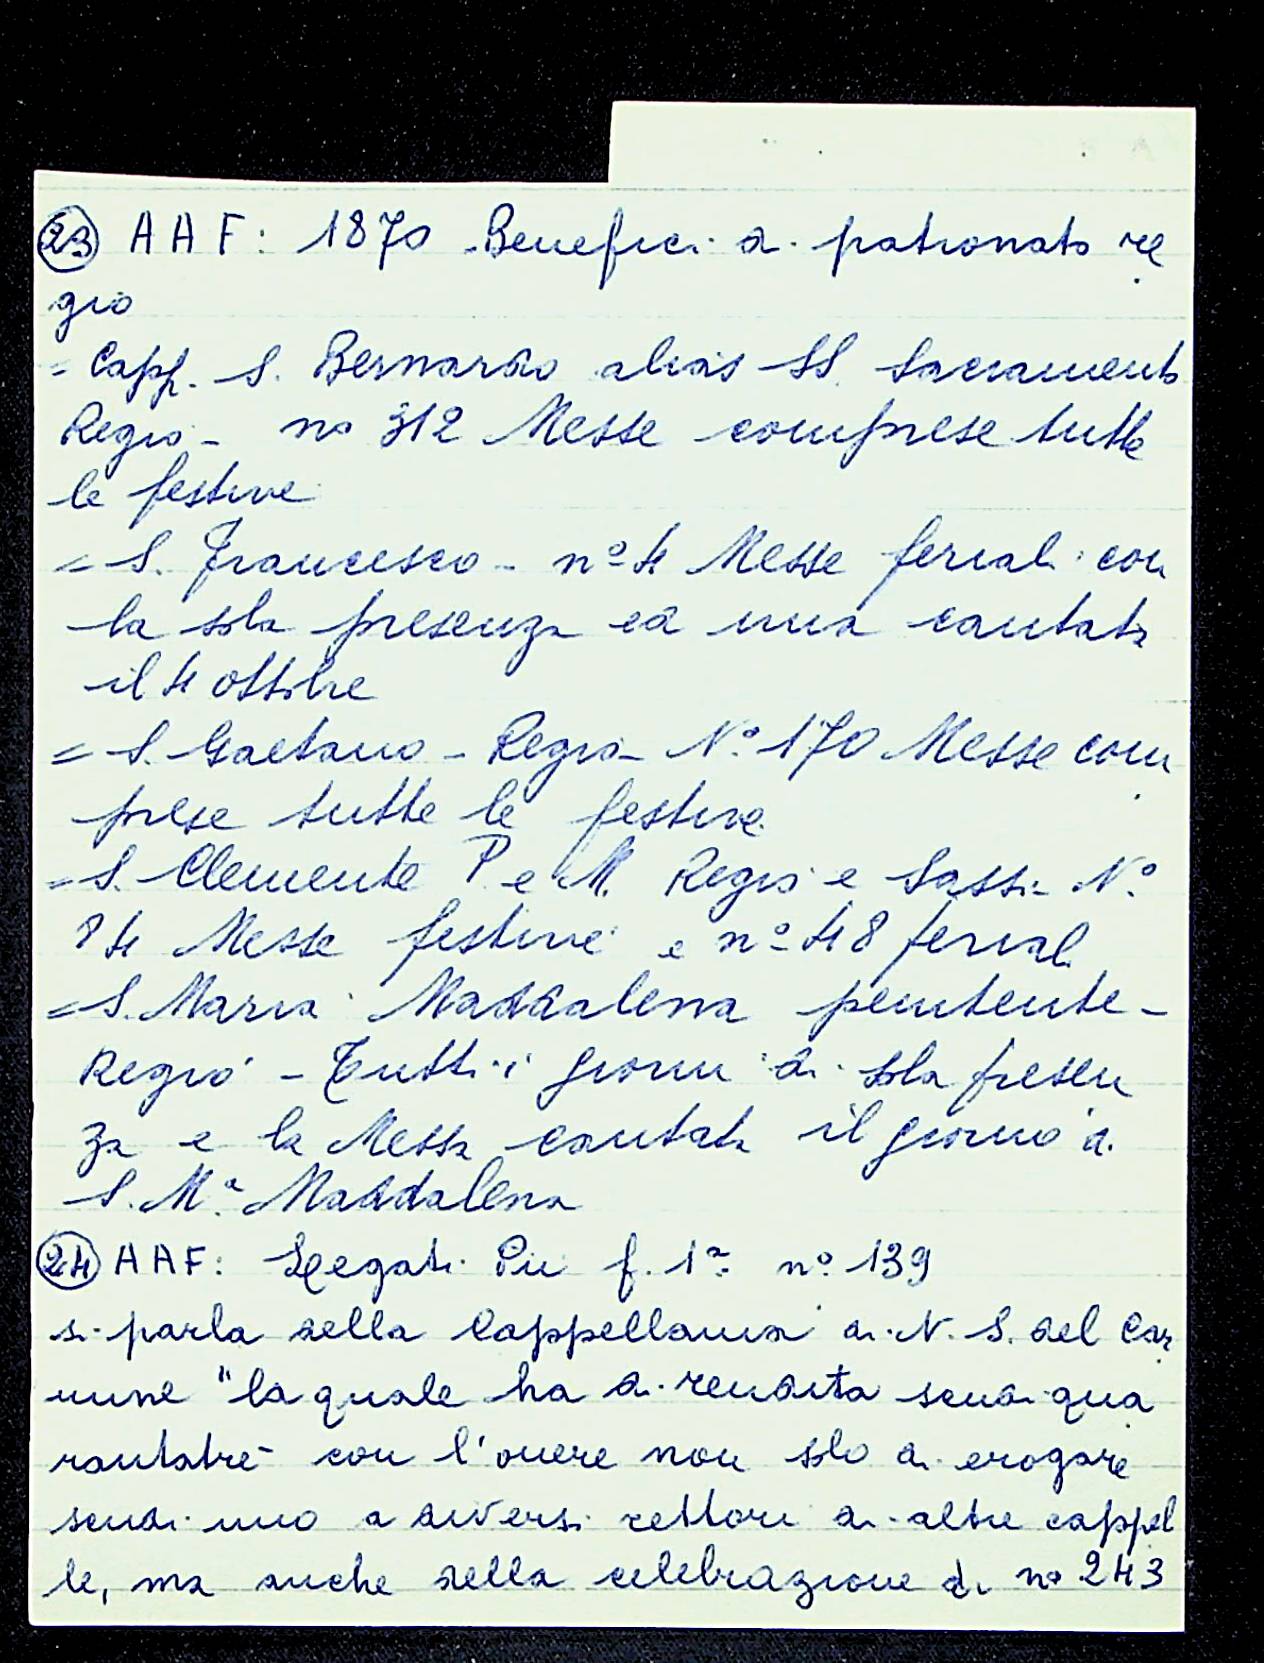 (23) AAF: 1870 Benefici di patronato re
gio
= Capp. S. Bernardo alias SS. Sacramento
Regio - no 312 Messe comprese tutte
le festive
= S. Francesco - nº 4 Messe feriali con
la sola presenza ed una cantata
il 4 ottobre
= S. Gaetano - Regio - Nº 170 Messe com
prese tutte le festive
= S. Clemente P. e M. Regio e Sassi - Nº
84 Messe festive e nº 48 feriali
= S. Maria Maddalena penitente -
Regio - Tutti i giorni di sola presen
za e la Messa cantata il giorno di
S. Mª Maddalena
(24) AAF: Legati Pii f. 1ª nº 139
si parla della Cappellania di N. S. del Car
mine "la quale ha di rendita scudi qua
rantatré con l'onere non solo di erogare
scudi uno a diversi rettori di altre cappel
le, ma anche della celebrazione di no 243